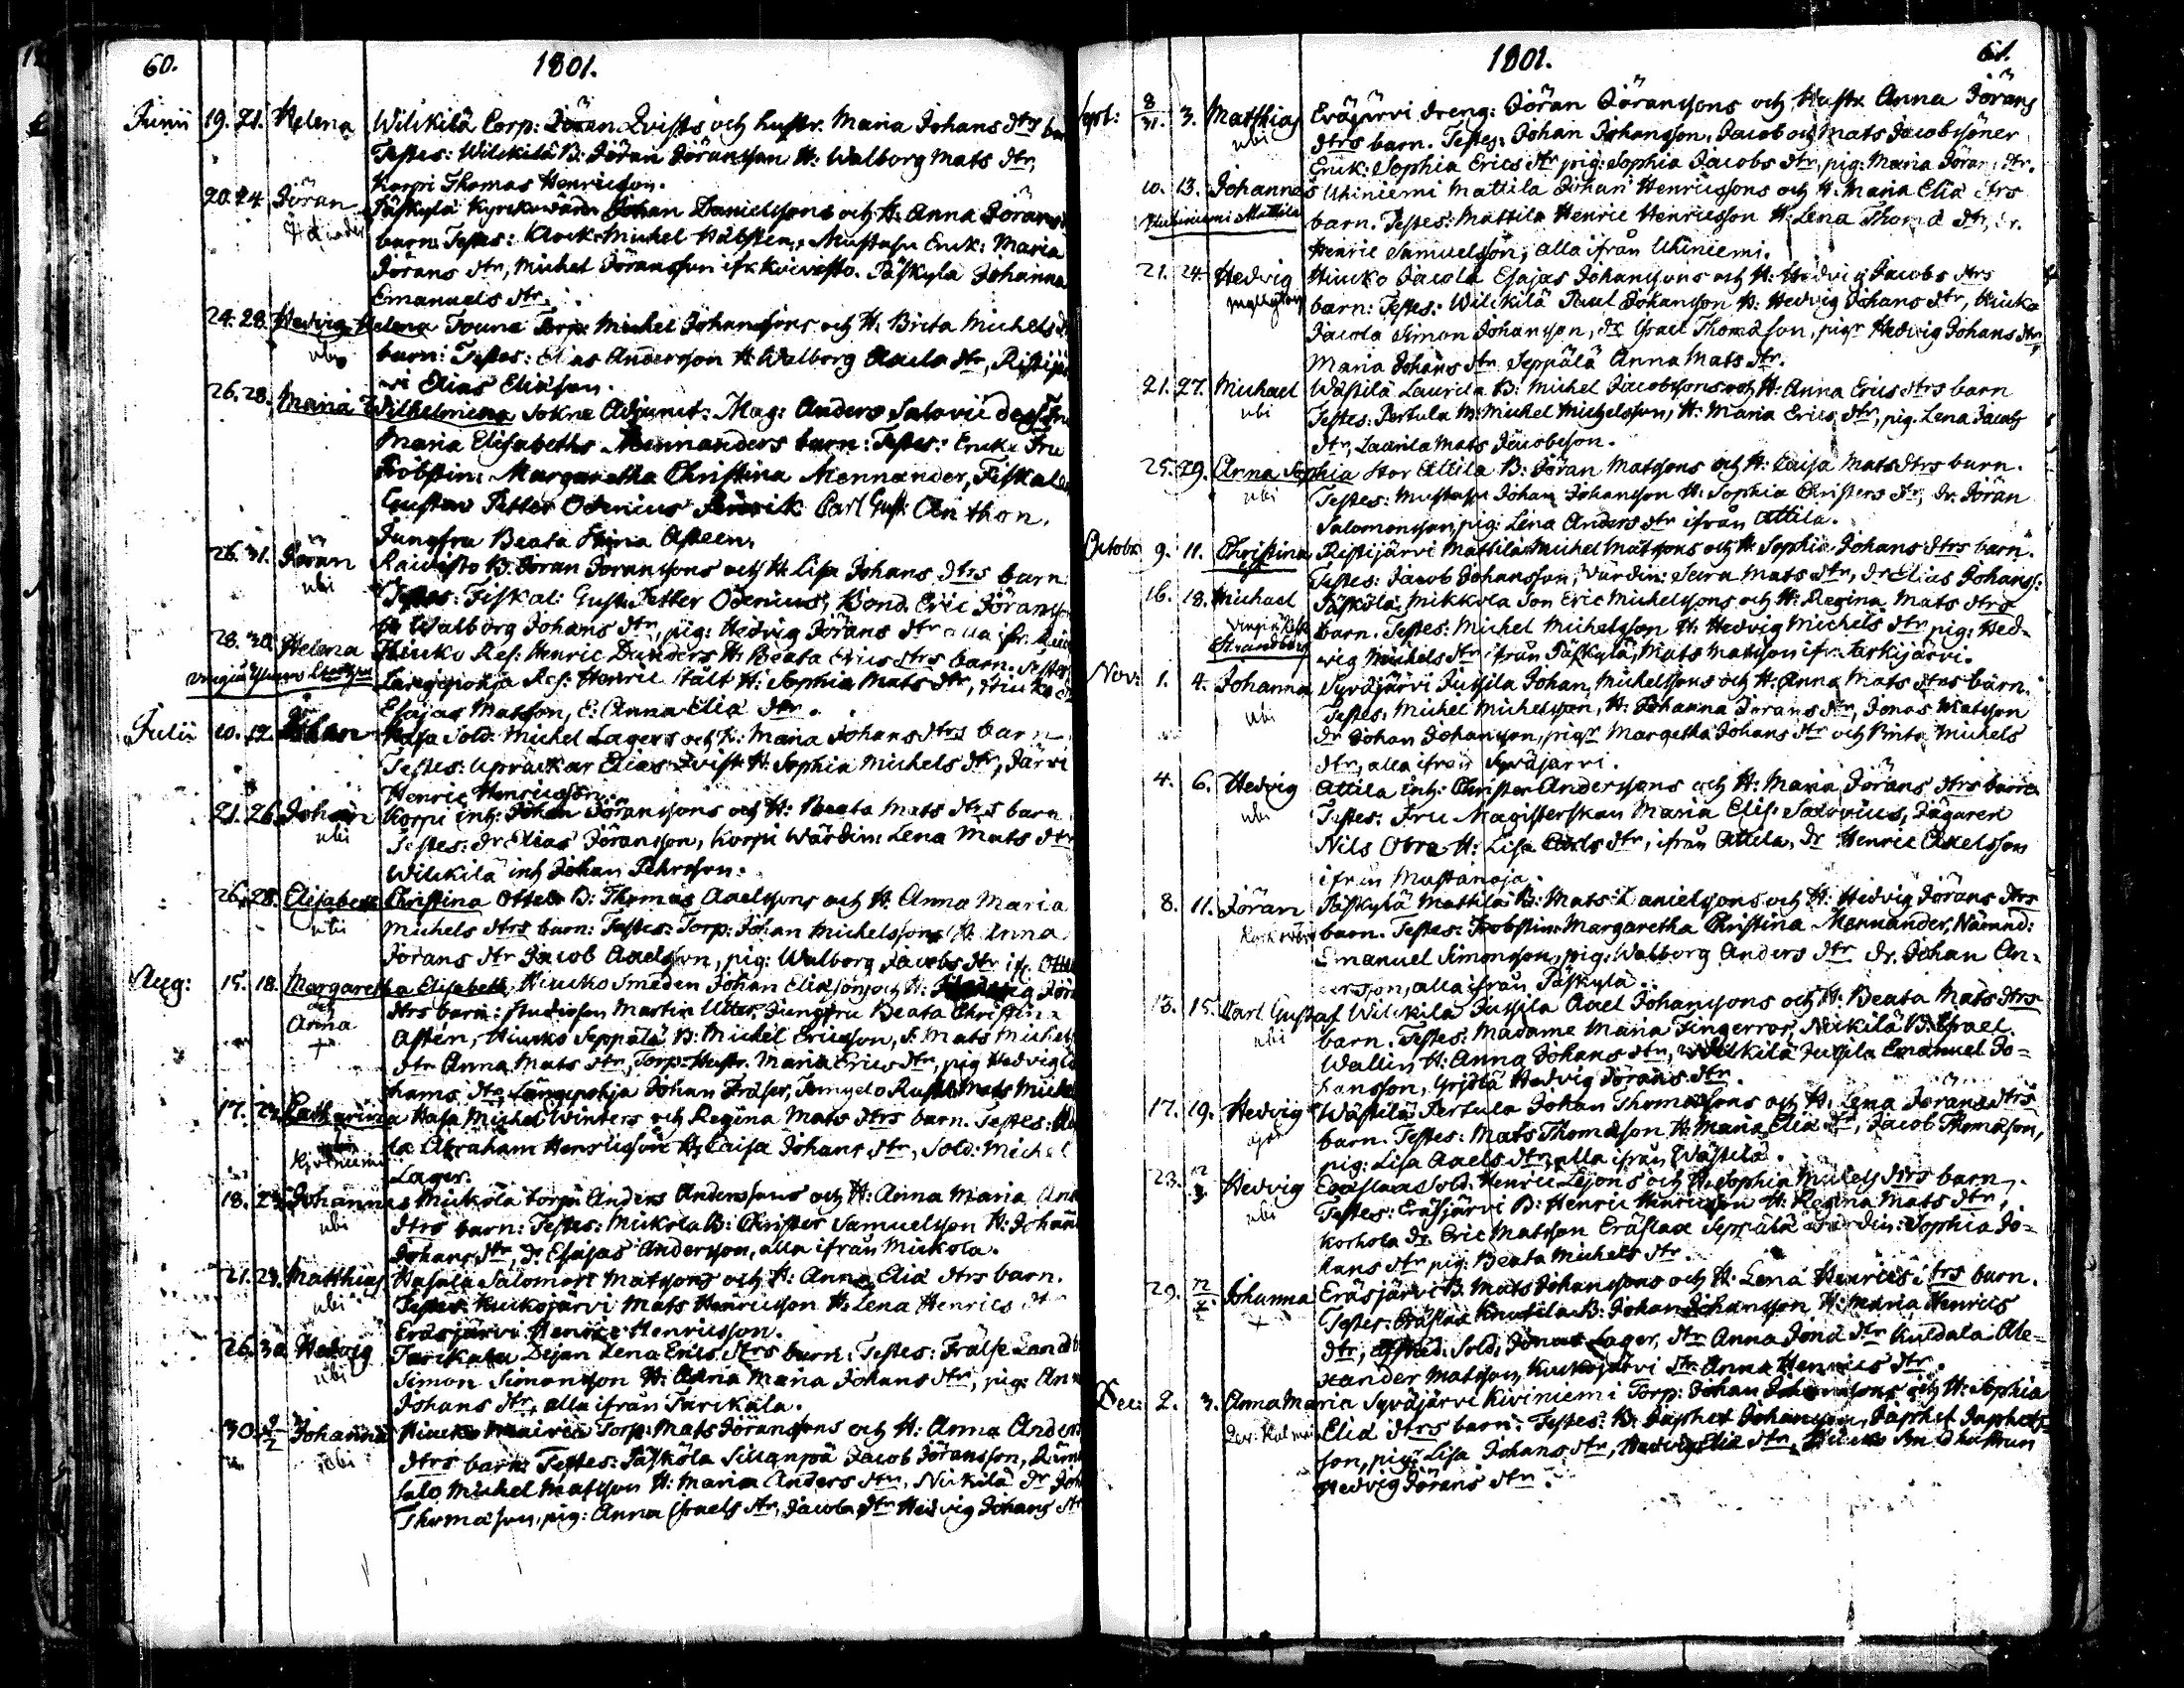 60.
1801.
Junii 19. 21. Helena Wilikilä Corp: Jöran Qvists och hustr. Maria Johans dtrs
Testes: Wilikilä B: Jöran Jöransson H: Walborg Mats dtr,
Korpi Thomas Henricsson.
20. 24. Jöran Päskylä Kyrkovärd: Johan Danielssons och H: Anna Jörans
barn: Testes: Klock: Michel Hälsten, Mustaju Enk: Maria
Jörans dtr, Michel Jöransson ifr. Koivisto. Päskylä Johanna
Emanuels dtr.
24. 28. Hedvig Helena Torp: Michel Johanssons och H: Brita Michels
ubi barn: Testes: Elias Andersson H: Walborg Axels dtr,
Elias Eliasson.
26. 28. Maria Wilhelmina Sokne Adjunct: Mag: Anders Salovii
Maria Elisabeths Mennanders barn: Testes: Enke Fru
Probstin: Margaretha Christina Mennander, Fiskalen
Gustav Petter Odenius Carl Gust:
Jungfru Beata Asteen.
26. 31. Jöran B: Jöran Joranssons och H: Lisa Johans dtrs barn
ubi Testes: Fiskal: Gust: Petter Odenius, Bond. Eric Jörans
H: Walborg Johans dtr, pig: Hedvig Jörans dtr alla ifr.
28. 30. Helena Hiuko Ref: Henric Dunders H: Beata Erics dtrs barn. Testes
Laxepohja Ref: Henric Stålt H: Sophia Mats dtr, Hiuko
Esajas Matsson, E: Anna Elia dtr.
Julii 10. 12. Johan Hasa Sold: Michel Lagers och H: Maria Johans dtrs barn
Testes: Elias Qvist H: Sophia Michels dtr, Järvi
Henric Henricsson.
21. 26. Johan Korpi inh: Johan Jöranssons och H: Beata Mats dtrs barn
ubi Testes: dr Elias Jöransson, Korpi Wärdin: Lena Mats dtr
Wilikilä inh Johan Pehrsson.
26. 28. Elisabeth Christina Ottela B: Thomas Axelssons och H: Anna Maria
ubi Michels dtrs barn: Testes: Torp: Johan Michelssons H: Anna
Jörans dtr Jacob Axelsson, pig: Walborg Jacobs dtr
Aug: 15. 18. Margaretha Elisabeth Hiucko Smeden Johan Eliassons och H:
och Anna dtrs barn: Studiosus Martin Utter, Jungfru Beata Christina
Asten, Hiucko Seppälä B: Michel Ericsson, Mats Michels
dtr Anna Mats dtr, Torp: Hustr. Maria Erics dtr, pig Hedvig
hams dtr Johan Fraser,
17. 23. Catharina Hasa Michel Winters och Regina Mats dtrs barn. Testes:
Abraham Henricsson H: Caisa Johans dtr, Sold: Michel
Lager.
18. 23. Johannes Mickola torp: Anders Anderssons och H: Anna Maria
ubi dtrs barn: Testes: Mickola B: Christer Samuelsson H: Johanna
Johans dtr, dr Esajas Andersson, alla ifrån Mickola.
21. 23. Matthias Hasala Salomon Matssons och H: Anna Elia dtrs barn.
ubi Testes: Kuckojärvi Mats Henricsson H: Lena Henrics dtr
Eräsjärvi Henric Henricsson.
26. 30. Hedvig Tarikala Dejan Lena Erics dtrs barn: Testes: Frälse
ubi Simon Simonsson H: Anna Maria Johans dtr, pig:
Johans dtr, alla ifrån Tarikala.
30. Johanna Hiucko Torp: Mats Jöranssons och H: Anna Anders
ubi dtrs barn: Testes: Päskölä Sillanpää Jacob Jöransson,
salo Michel Matsson H: Maria Anders dtr, Nickilä dr
Thomasson, pig: Anna Israels dtr, Jacola dtr Hedvig Johans dtr
1801.
61.
Sept: 8/31. 3. Matthias Eräjärvi dreng: Jöran Jöranssons och Hustr Anna Jörans
ubi dtrs barn. Testes: Johan Johansson, Jacob och Mats Jacobssöner
Enk: Sophia Erics dtr pig: Sophia Jacobs dtr, pig: Maria Jörans dtr.
10. 13. Johannes Uhiniemi Mattila Johan Henricssons och H: Maria Elia dtrs
Uhiniemi Mattila barn. Testes: Mattila Henric Henricsson H: Lena Thoma dtr, dr.
Henric Samuelsson, alla ifrån Uhiniemi.
21. 24. Hedvig Hiucko Jacola Esajas Johanssons och H: Hedvig Jacobs dtrs
barn: Testes: Wilikilä Paul Johansson H: Hedvig Johans dtr, Hiucko
Jacola Simon Johansson, dr Israel Thomasson, pigr Hedvig Johans dtr
Maria Johans dtr Seppälä Anna Mats dtr.
21. 27. Michael Wästilä Laurila B: Michel Jacobssons och H: Anna Erics dtrs barn
ubi Testes: Pertula M: Michel Michelsson, H: Maria Erics dtr, pig. Lena Jacobs
dtr, Laurila Mats Jacobsson.
25. 29. Anna Sophia Stor Attila B: Jöran Matssons och H: Caisa Mats dtrs barn.
ubi Testes: Mustaju Johan Johansson H: Sophia Christers dtr, dr. Jöran
Salomonsson, pig: Lena Anders dtr ifrån Attila.
Octobr 9. 11. Christina Ristijärvi Mattila Michel Matssons och H: Sophia Johans dtrs barn.
Testes: Jacob Johansson, Wärdin: Sara Mats dtr, dr Elias Johans:
16. 18. Michael Päskölä Mikkola Son Eric Michelssons och H: Regina Mats dtrs
Strandberg barn. Testes: Michel Michelsson H: Hedvig Michels dtr pig: Hed-
vig Michels dtr ifrån Päskylä, Mats Matsson ifr: Särkijärvi.
Nov: 1. 4. Johanna Syväjärvi Jussila Johan Michelssons och H: Anna Mats dtrs barn.
ubi Testes: Michel Michelsson, H: Johanna Jörans dtr, Jonas Matsson
dr Johan Johansson, pigr Margetha Johans dtr och Brita Michels
dtr, alla ifrån Syväjärvi.
4. 6. Hedvig Attila inh: Christer Anderssons och H: Maria Jörans dtrs barn
ubi Testes: Fru Magisterskan Maria Elis: Salovius, Jägaren
Nils Obra H: Lisa Carls dtr, ifrån Attila, dr Henric Axelsson
ifrån Mustanoja.
8. 11. Jöran Päskylä Mattila B: Mats Danielssons och H: Hedvig Jörans dtrs
barn. Testes: Probstin: Margaretha Christina Mennander, Nämnd:
Emanuel Simonsson, pig: Walborg Anders dtr dr. Johan An-
dersson, alla ifrån Päskylä.
13. 15. Carl Gustaf Wilikilä Jussila Axel Johanssons och H: Beata Mats dtrs
ubi barn. Testes: Madame Maria Fingerroos, Nickilä B: Israel
Wallin H: Anna Johans dtr, Wilikilä Jussila Emanuel Jo-
hansson, Hedvig Jörans dtr.
17. 19. Hedvig Wästilä Pertula Johan Thomassons och H: Lena Jörans dtrs
barn. Testes: Mats Thomasson H: Maria Elia dtr, Jacob Thomasson,
pig: Lisa Axels dtr, alla ifrån Wästilä.
23. Hedvig Eräslax Sold: Henric Lejons och H: Sophia Michels dtrs barn.
ubi Testes: Eräsjärvi B: Henric Henricsson H: Regina Mats dtr,
Korhola dr. Eric Matsson Eräslax Seppälä Wärdin: Sophia Jo-
hans dtr pig: Beata Michels dtr.
29. Johanna Eräsjärvi B: Mats Johanssons och H: Lena Henrics dtrs barn.
Testes: Eräslax Knutila B: Johan Johansson H: Maria Henrics
dtr, Sold: Jonas Lager, dtr Anna Jona dtr Kuldala Ale-
xander Matsson, Kuckojärvi dtr. Anna Henrics dtr.
Dec: 2. 3. Anna Maria Syväjärvi Kiviniemi Torp: Johan Johanssons och H: Sophia
Elia dtrs barn. Testes: B: Japhet Johansson, Japhet Japhets-
son, pigr Lisa Johans dtr, Hedvig Elia dtr,
Hedvig Jörans dtr.